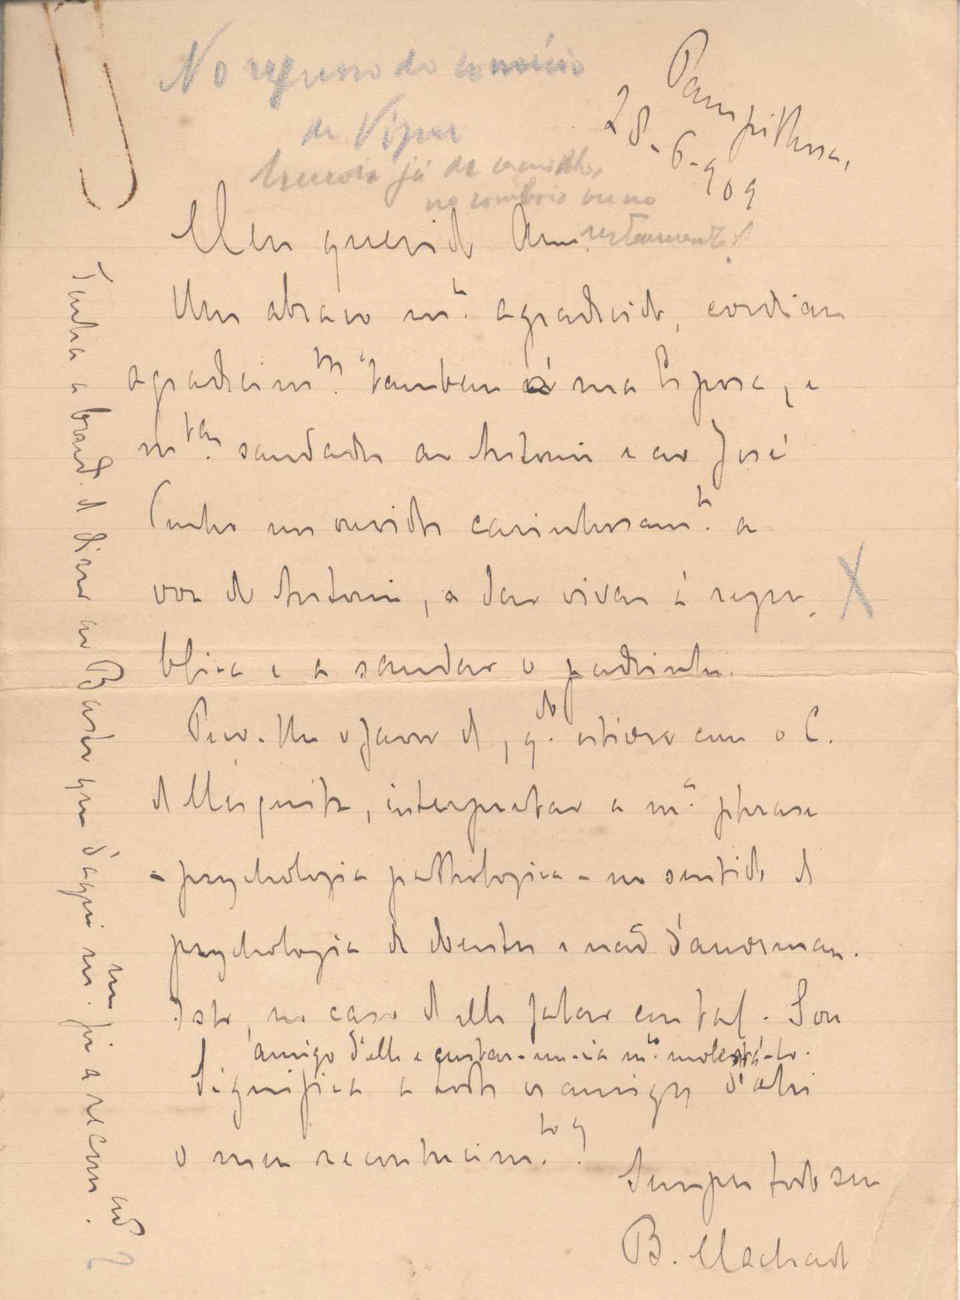 No regresso do comício
de Vizeu
Pampilhosa,
28-6-909
já de
no comboio ou no
Meu querido Am.
Um abraço m.to agradecido, cordiaes
agradecim.tos tambem á sua Esposa, e
m.tas saudades ao Antonio e ao José
Tenho nos ouvidos carinhosam.te a
voz do Antonio, a dar vivas á repu-
blica e a saudar o padrinho.
Peço-lhe o favor de, q.do estiver com o C.
de Mesquita, interpretar a m.a phrase
- psychologia pathologica - no sentido de
psychologia de doentes e não d'anormaes.
Isto, no caso d'elle falar em tal. Sou
amigo d'elle e custar-me-ia m.to molestá-lo.
Significa a todos os amigos d'ahi
o meu reconhecim.to
Sempre todo seu
B. Machado
Tenha a bond. de dizer ao Basto que d'aqui m.